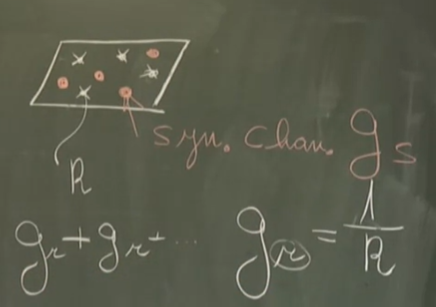 syn. chan. g_s
R
g_r + g_r + ... g_r = 1/R